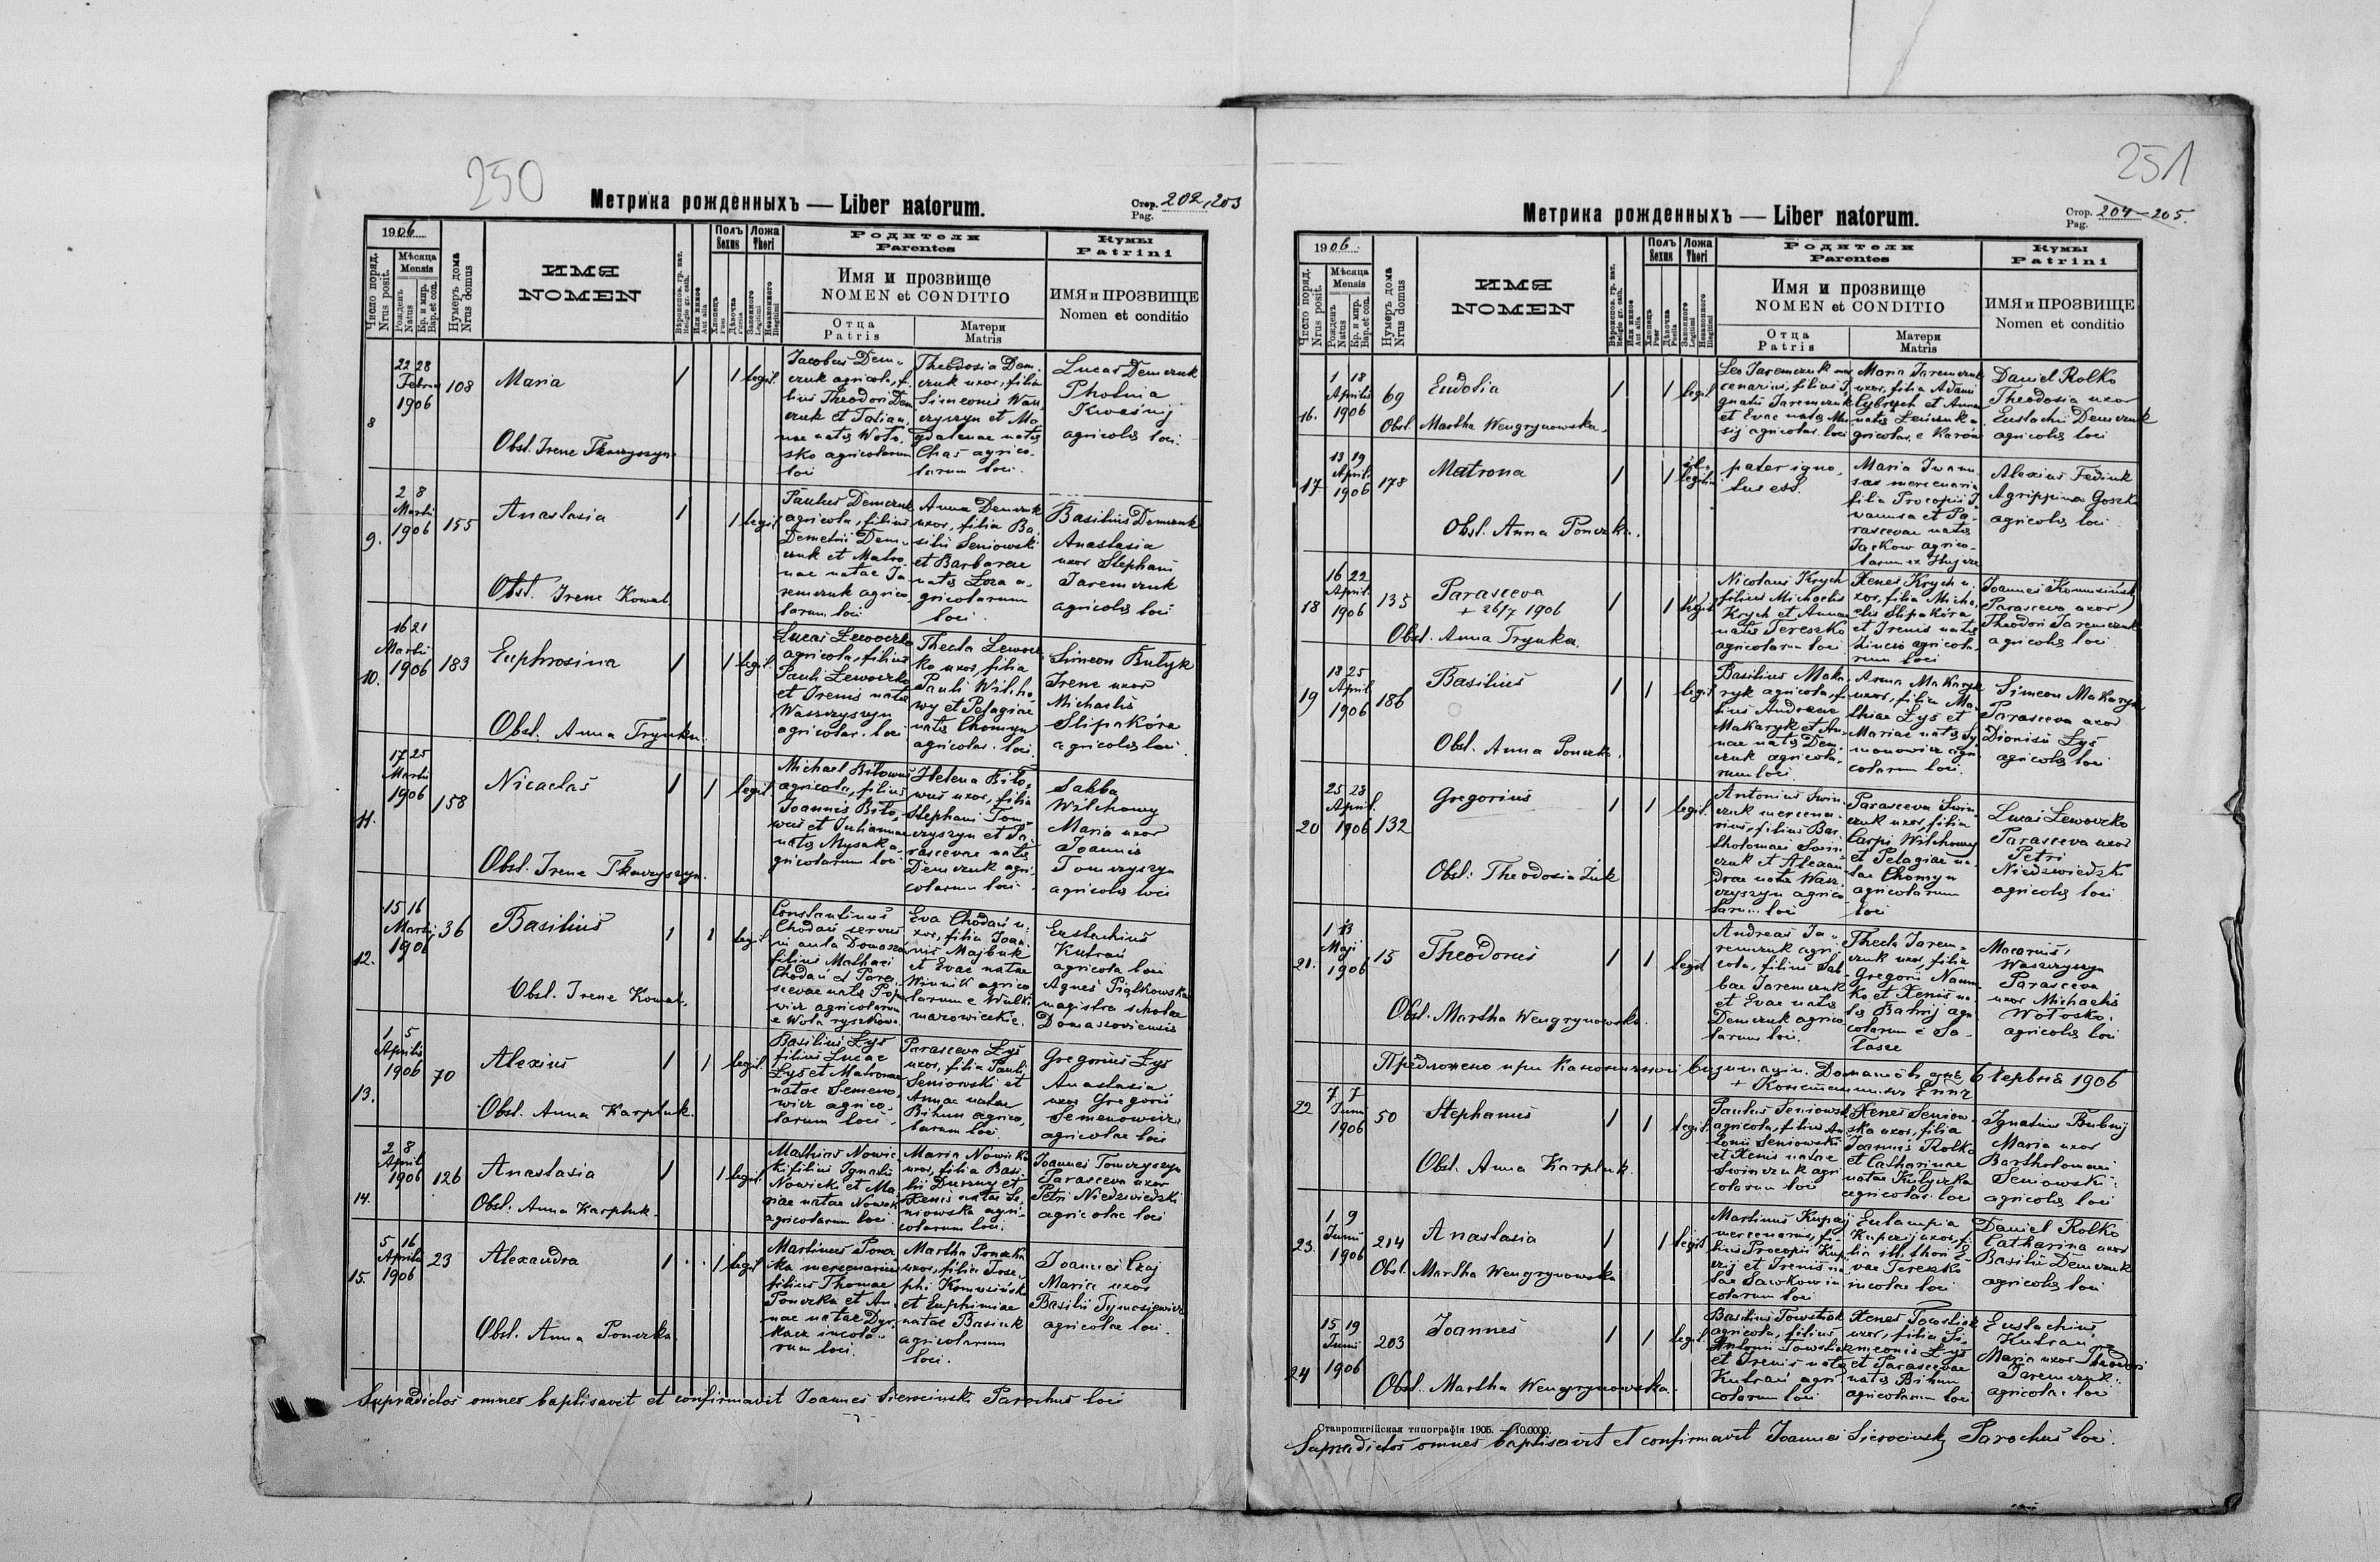 250
Метрика рожденныхъ — Liber natorum.
Стор. 202, 203
Pag.
1906
Число поряд.
Nrus posit.
Мѣсяца
Mensis
Рожденъ
Natus
Кр. и мир.
Bap. et con.
Нумеръ дома
Nrus domus
ИМЯ
NOMEN
Вѣроиспов. гр. кат.
Religio gr. cath.
Или инное
Aut alia
Полъ
Sexus
Хлопецъ
Puer
Дѣвочка
Puella
Ложа
Thori
Законного
Legitimi
Незаконного
Illegitimi
Родители
Parentes
Имя и прозвище
NOMEN et CONDITIO
Отца
Patris
Матери
Matris
Кумы
Patrini
ИМЯ и ПРОЗВИЩЕ
Nomen et conditio
8
22 28
1906
108
Maria
1 1 legit.
Obst. Irene Tkaczyszyn
Jacobus Dem-
czuk agricola, fi-
lius Theodori Dem
czuk et Tatian-
nae natae Woło-
sko agricolarum
loci
Theodosia Dem-
czuk uxor, filia
Simeonis Wasz
czyszyn et Ma
gdalenae natae
Chaś agrico-
larum loci.
Lucas Demczuk
Photina
Kwaśnij
agricolae loci
9.
2 8
Martii
1906
155
Anastasia
1 1 legit
Obst. Irene Kowal
Paulus Demczuk
agricola, filius
Demetrii Dem-
czuk et Matro
nae natae Ja
remczuk agrico
larum loci
Anna Demczuk
uxor, filia Ba
silii Seniowski
et Barbarae
natae Łoza a-
gricolarum
loci.
Basilius Demczuk
Anastasia
uxor Stephani
Jaremczuk
agricolae loci
10.
16 21
Martii
1906
183
Euphrosina
1 1 legit.
Obst. Anna Trynka.
Lucas Lewoczko
agricola, filius
Pauli Lewoczko
et Irenis natae
Waszczyszyn
agricolar. loci
Thecla Lewocz
ko uxor, filia
Pauli Wilcho
wy et Pelagiae
natae Chomyn
agricolar. loci
Simeon Bułyk
Irene uxor
Michaelis
Slipakóra
agricolae loci
11.
17 25
Martii
1906
158
Nicaelas
1 1 legit.
Obst. Irene Tkaczyszyn.
Michael Biłowus
agricola, filius
Joannis Biło-
wus et Julianna
natae Mysaka
gricolarum loci
Helena Biło
wus uxor, filia
Stephani Tom
czyszyn et Pa
rascevae natae
Demczuk agri
colarum loci
Sabba
Wilchowy
Maria uxor
Joannis
Tomczyszyn
agricolae loci
12.
15 16
Martii
1906
36
Basilius
1 1 legit
Obst. Irene Kowal.
Constantinus
Chodań servus
in aula
filius Mathaei
Chodań et Para
scevae natae Popo
wicz agricolarum
e Wola ryszkowa.
Eva Chodań u-
xor, filia Joan
nis Majbuk
et Evae natae
Winnik agrico
larum e Wulki
mazowieckie.
Eustachius
Kutrań
agricola loci
Agnes Piątkowska
magistra scholae
Domaszoviensis
13.
1 5
Aprilis
1906
70
Alexius
1 1 legit.
Obst. Anna Karpluk.
Basilius Łyś
filius Lucae
Łyś et Matronae
natae Semeno
wicz agrico-
larum loci.
Parasceva Łyś
uxor, filia Pauli
Seniowski et
Annae natae
Bihun agrico
larum loci.
Gregorius Łyś
Anastasia
uxor Gregorii
Semenowicz
agricolae loci
14.
2 8
April.
1906
126
Anastasia
1 1 legit
Obst. Anna Karpluk.
Mathias Nowic
ki filius Ignatii
Nowicki et Ma
riae natae Nowak
agricolarum loci
Maria Nowicka
uxor, filia Basi
lii Duszny et
Xenis natae Se
niowska agri-
colarum loci.
Joannes Tomczyszyn
Parasceva uxor
Petri Niedzwiedzki
agricolae loci
15.
5 16
Aprilis
1906
23
Alexandra
1 1 legit
Obst. Anna Ponczka.
Martinus Poncz
ka mercenarius
filius Thomae
Ponczka et An
nae natae Dyr
kacz incola-
rum loci.
Martha Ponczka
uxor, filia Jose
phi Komuszińsk
et Euphimiae
natae Basiuk
agricolarum
loci.
Joannes Czaj
Maria uxor
Basilii Tymosiewicz
agricolae loci.
Supradictos omnes baptisavit et confirmavit Joannes Sierocinski Parochus loci
251
Метрика рожденныхъ — Liber natorum.
Стор. 204-205.
Pag.
1906.
Число поряд.
Nrus posit.
Мѣсяца
Mensis
Рожденъ
Natus
Кр. и мир.
Bap. et con.
Нумеръ дома
Nrus domus
ИМЯ
NOMEN
Вѣроиспов. гр. кат.
Religio gr. cath.
Или инное
Aut alia
Полъ
Sexus
Хлопецъ
Puer
Дѣвочка
Puella
Ложа
Thori
Законного
Legitimi
Незаконного
Illegitimi
Родители
Parentes
Имя и прозвище
NOMEN et CONDITIO
Отца
Patris
Матери
Matris
Кумы
Patrini
ИМЯ и ПРОЗВИЩЕ
Nomen et conditio
16.
1 18
Aprilis
1906
69
Eudosia
1 1 legit
Obst. Martha Wengrynowska.
Leo Jaremczuk mer
cenarius, filius I
gnatii Jaremczuk
et Evae natae Mu
sij agricolar. loci
Maria Jaremczuk
uxor, filia Adami
Cybrych et Annae
natae
gricolar. e Karów
Daniel Rolko
Theodosia uxor
Eustachii Demczuk
agricolae loci
17
13 19
April.
1906
178
Matrona
1 1 il-
legitim
Obst. Anna Ponczka.
pater igno-
tus est.
Maria Iwanu
sas mercenaria
filia Procopii I
wanusa et Pa-
rascevae natae
Jackow agrico-
larum ex Hujcze
Alexius Fediuk
Agrippina Goszko
agricolae loci
18
16 22
April.
1906
135
Parasceva
+ 26/7 1906
1 1 legit
Obst. Anna Trynka.
Nicolaus Krych
filius Michaelis
Krych et Annae
natae Tereszko
agricolarum loci
Xenes Krych u-
xor, filia Micha
elis Slipakóra
et Irenis natae
agricola
rum loci
Joannes Komusiński
Parasceva uxor
Theodori Jaremczuk
agricolae loci
19
18 25
April
1906
186
Basilius
1 1 legit
Obst. Anna Ponczka.
Basilius Maka
ryk agricola, fi
lius Andreae
Makaryk et An
nae natae Dem
czuk agricola-
rum loci
Anna Makaryk
uxor, filia Ma
thiae Łyś et
Mariae natae Sy
monowicz agri
colarum loci.
Simeon Makaryk
Parasceva uxor
Dionisii Łyś
agricolae loci
20
25 28
April.
1906
132
Gregorius
1 1 legit.
Obst: Theodosia Żuk
Antonius Swin
czuk mercena-
rius, filius Bar
tholomaei Swin
czuk et Alexan
drae natae Wasz
czyszyn agrico
larum loci
Parasceva Swin
czuk uxor, filia
Carpi Wilchowy
et Pelagiae na-
tae Chomyn
agricolarum
loci
Lucas Lewoczko
Parasceva uxor
Petri
Niedzwiedzki
agricolae loci
21.
1 13
Maji
1906
15
Theodorus
1 1 legit
Obst. Martha Wengrynowska.
Andreas Ja-
remczuk agri-
cola, filius Sab
bae Jaremczuk
et Evae natae
Demczuk agrico
larum loci.
Thecla Jarem-
czuk uxor, filia
Gregorii Naum
ko et Xenis na
tae Batrij agri
colarum e Sa-
lasze
Macarius
Waszczyszyn
Parasceva
uxor Michaelis
Wołosko.
agricolae loci
Предложено при Каноничной визитации. Домашôвъ днь 6 Червня 1906
+ Константинъ Еппъ
22
7 7
Junii
1906
50
Stephanus
1 1 legit
Obst. Anna Karpluk.
Paulus Seniowski
agricola, filius An
tonii Seniowski
et Xenis natae
Swinczuk agri
colarum loci
Xenes Seniow-
ska uxor, filia
Joannis Rolko
et Catharinae
natae Kulyczka
agricolar. loci
Ignatius Bubnij
Maria uxor
Bartholomaei
Seniowski
agricolae loci
23.
1 9
Junii
1906
214
Anastasia
1 1 legit
Obst. Martha Wengrynowska
Martinus Kuperij
mercenarius, fi-
lius Procopii Kup
erij et Irenis na
tae Sawkow in
colarum loci
Eulampia
Kuperij uxor, fi
lia ill. thori E-
vae Tereszko
incolae loci
Daniel Rolko
Catharina uxor
Basilii Demczuk
agricolae loci
24
15 19
Junii
1906
203
Joannes
1 1 legit.
Obst. Martha Wengrynowska.
Basilius Towstiak
agricola, filius
Antonii Towstiak
et Irenis natae
Kutrań agri
colarum loci
Xenes Towstiak
uxor, filia Si-
meonis Łyś
et Parascevae
natae Bihun
agricolarum loci
Eustachius
Kutrań
Maria uxor Theodori
Jaremczuk.
agricolae loci
Ставропигійская типографія 1905. — 10.0000.
Supradictos omnes baptisavit et confirmavit Joannes Sierocinski Parochus loci.